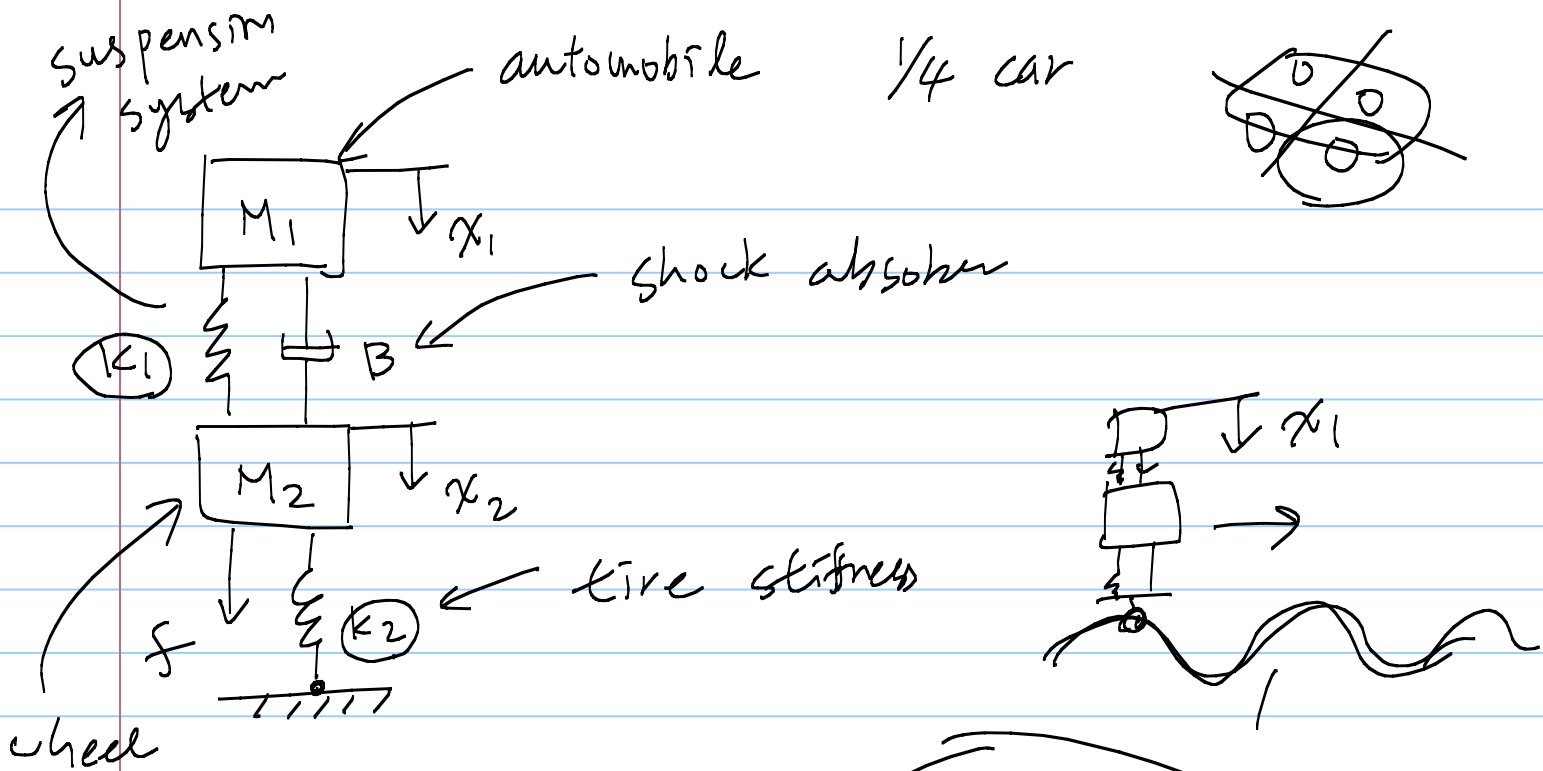 suspension
system
automobile
1/4 car
M1
x1
shock absober
K1
B
M2
x2
x1
tire stifness
f
K2
wheel